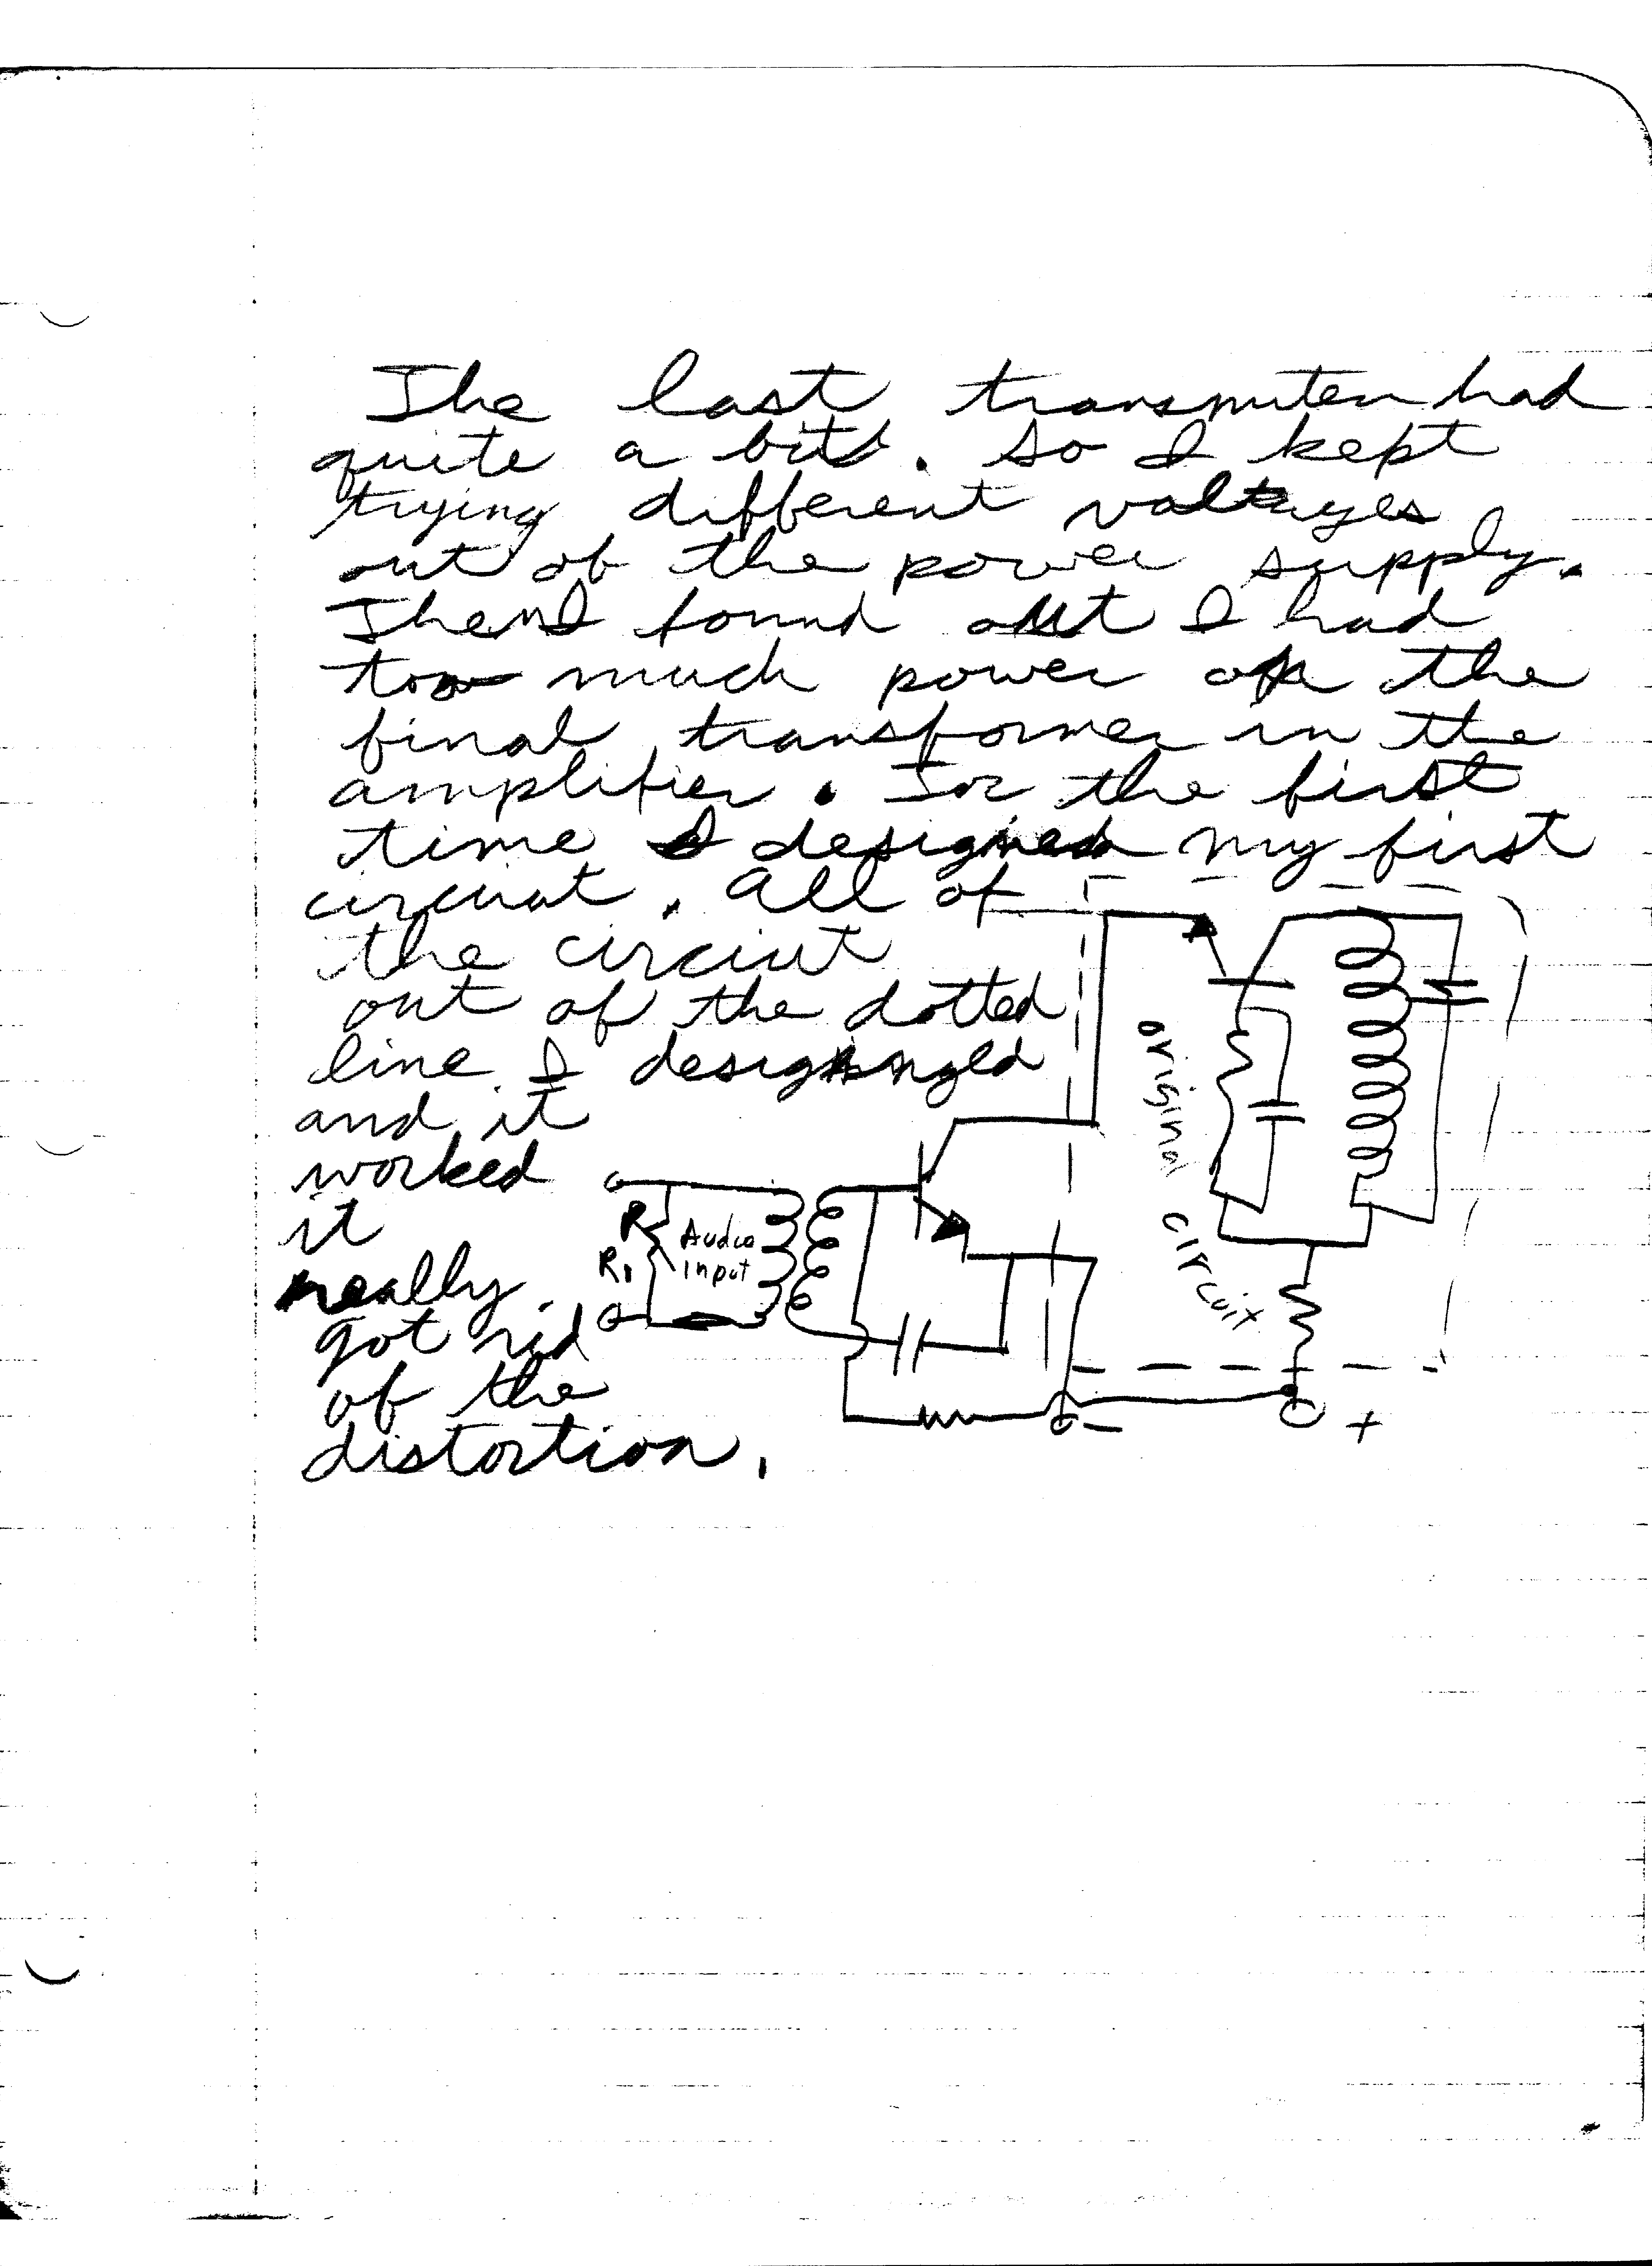 The last transmiter had
quite a bit. So I kept
trying different voltages
out of the power supply.
Then I found out I had
too much power on the
final transformer in the
amplifier. For the first
time I designed my first
circiut. All of
the circiut
out of the dotted
line I
and it
worked
it
really
got rid
of the
distortion.
original circuit
R Audio
R1 input
-
+